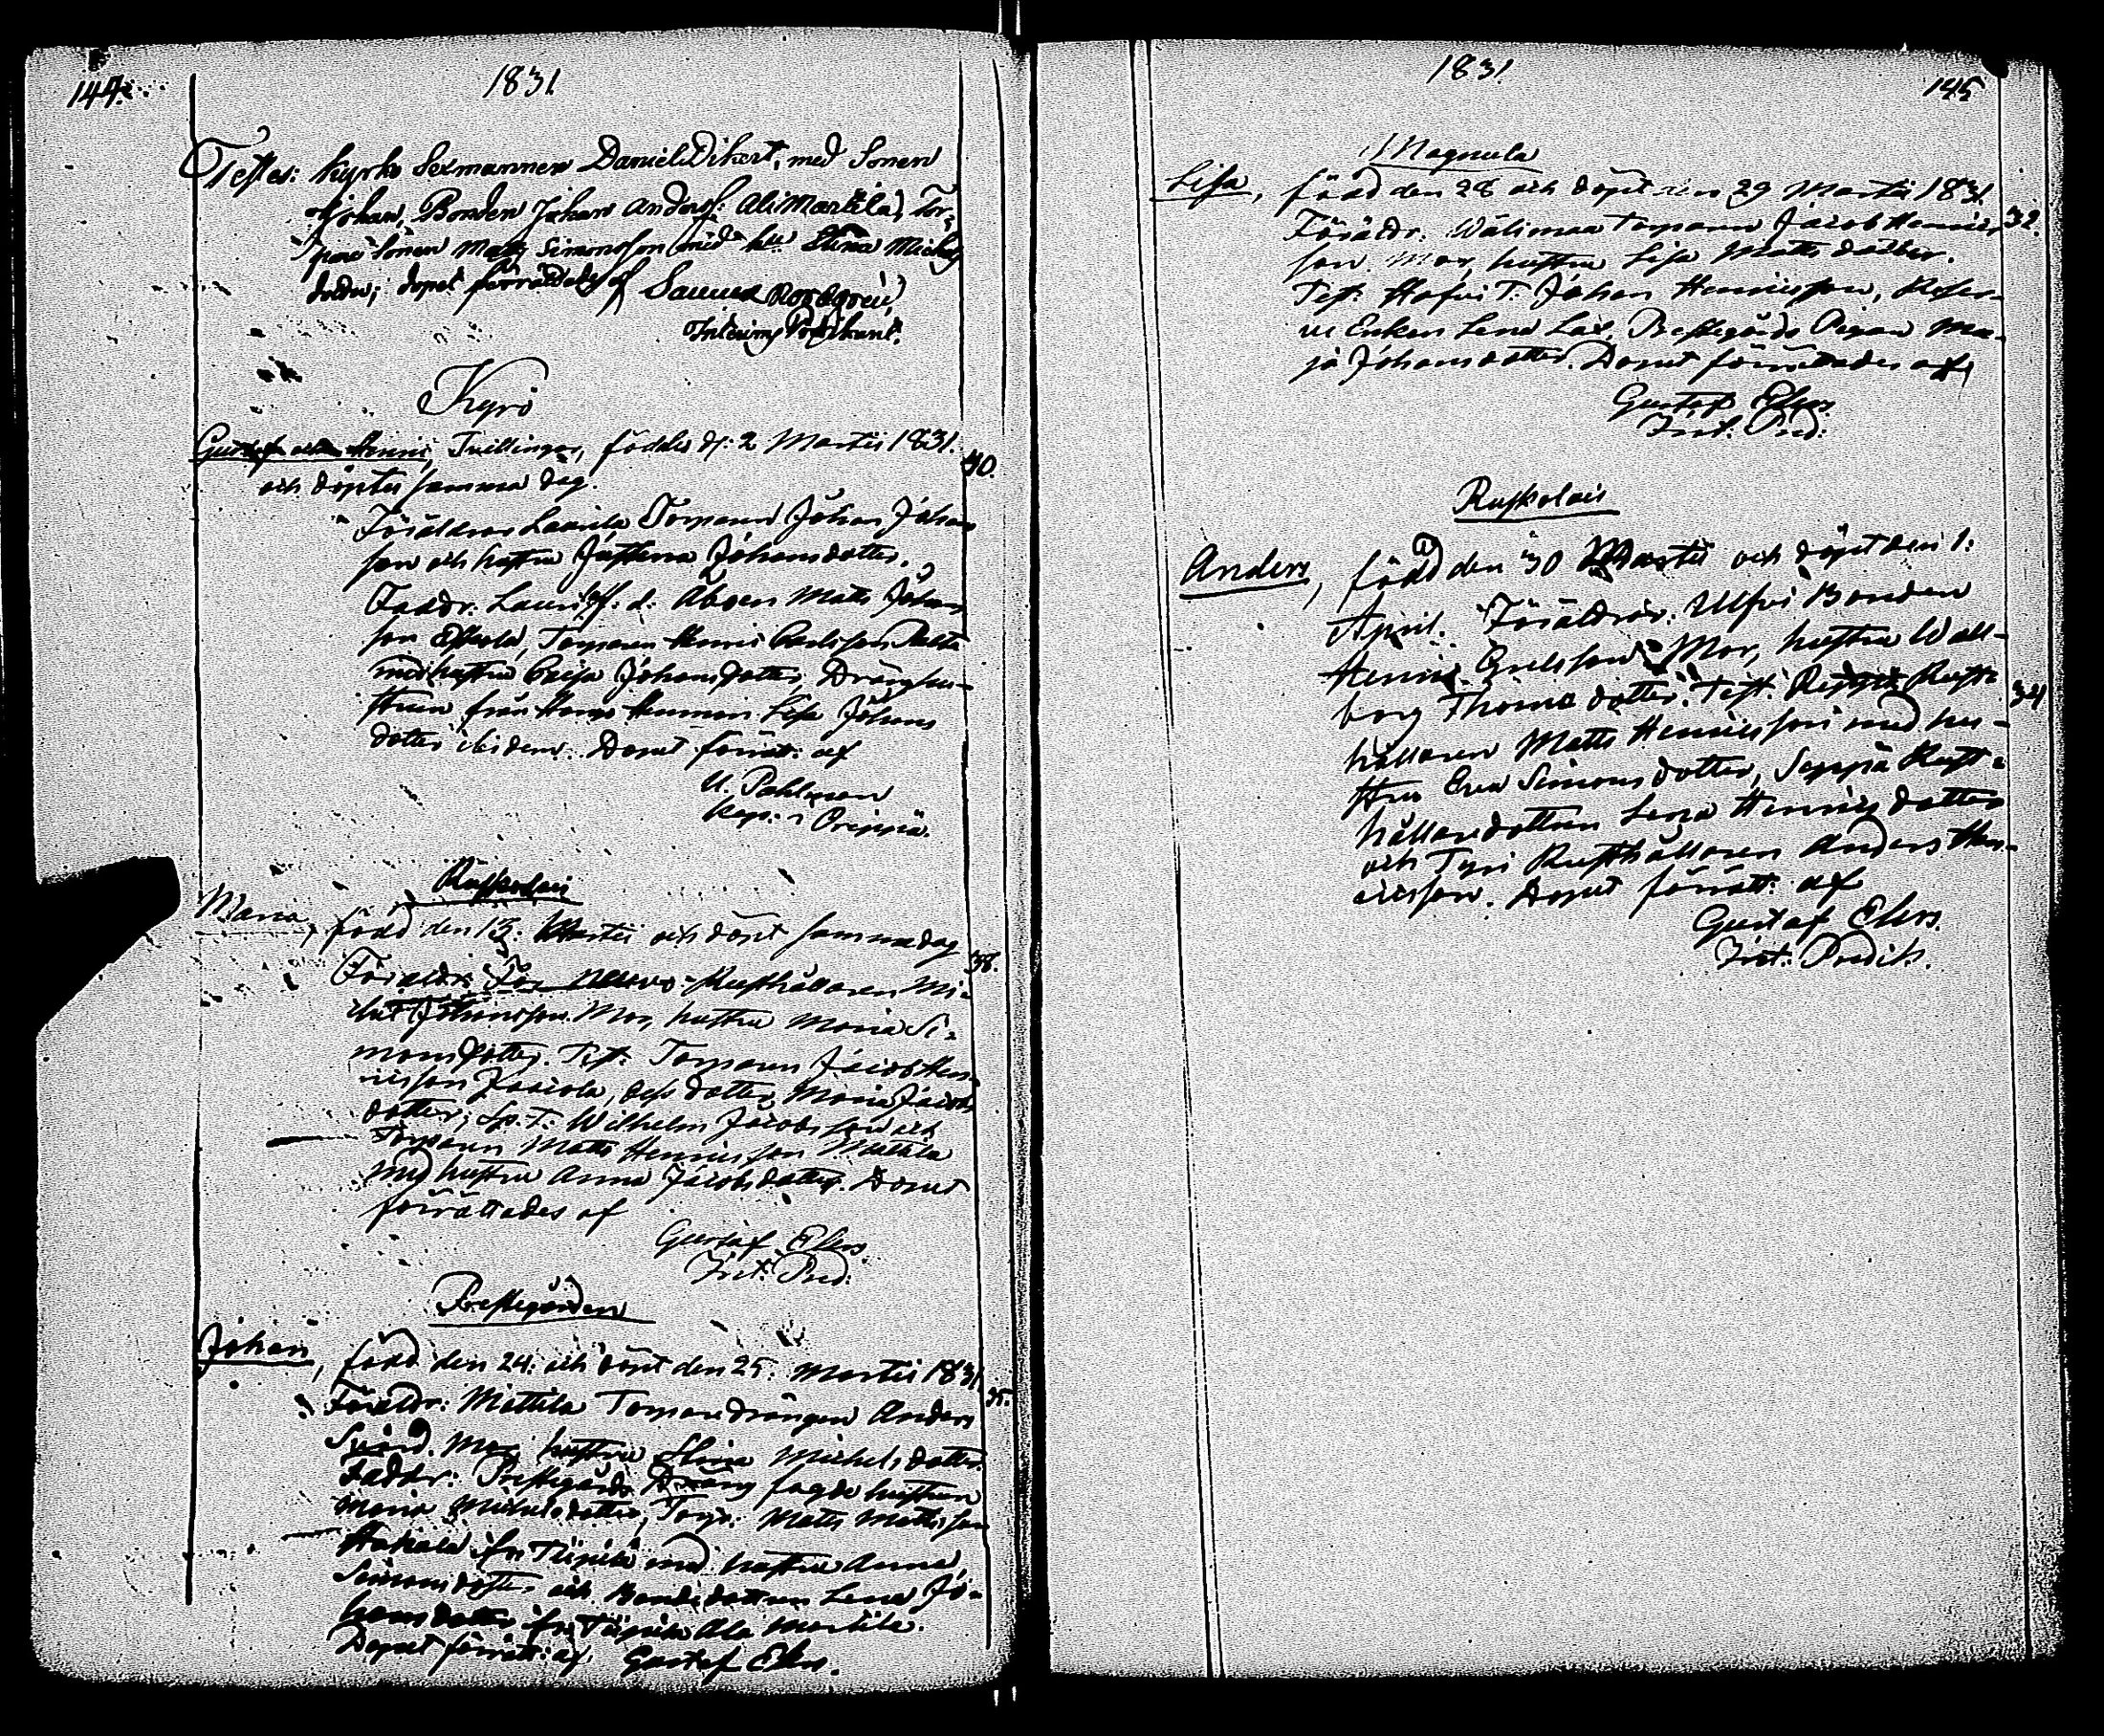 144.
1831.
Testes: Kyrko Sexmannen Daniel Dikert, med Sonen
Johan, Bonden Johan Anderss: Ali Martila, Tor-
pare Sonen Matts Simonsson med hu Stina Michels
dotter; dopet förrättades af Samuel Rosegren,
Interims Predikant.
Kyrö
Gustaf och Henric, Tvillingar, föddes d: 2 Martii 1831.
40.
och döptes samma dag.
Föräldrar Laurila Torparen Johan Johan
son och hustru Justina Johansdotter.
Faddr: Matts Johan
son Eskola, Torparen Henric Carlsson
med hustru Caisa Johansdotter, Dränghu-
strun från Lisa Johans
dotter ibidem. Dopet förrät: af
U. Pahlman
Kap: i Oripää
Ruskolais
Maria, född den 13. Martii och döpt samma dag
38.
Föräldr: Rusthållaren Mi-
chel Johansson. Mor, hustru Maria Si-
monsdotter. Test: Torparen Jacob Hen-
ricsson dess dotter Maria Jacobs
dotter, Sp. T. Wilhelm Jacobsson och
Torparen Matts Henricsson Mattila
med hustru Anna Jacobsdotter. Dopet
förrättades af
Gustaf Elers
Int: Pred:
Prestegården
Johan, född den 24. och döpt den 25. Martii 1831
35.
Föräldr: Mattila Torparedrängen Anders
Svärd. Mor hustru Stina Michelsdotter.
Faddr: Prestegårds Dräng hustrun
Maria Michelsdotter, Torp: Matts Mattsson
Hakala med hustru Anna
Simonsdotter och Bondedottren Lena Jo-
hansdotter Ala Martila.
Dopet förrätt: af Gustaf Elers.
1831.
145
Magnula
Lisa, född den 28 och döpt den 29 Martii 1831.
32.
Föräldr: Wälimaa Torparen Jacob Henrics
son. Mor, hustru Lisa Mattsdotter.
Test: T: Johan Henricsson,
Enkan Lena Lax, Prestegårds Pigan Ma-
ja Johansdotter. Dopet förrättades af
Gustaf Elers
Int: Pred:
Ruskolais
Anders, född den 30 Martii och döpt den 1:
April. Föräldrar: Ulfvi Bonden
Henric Erelsson. Mor, hustru Wall-
borg Thomasdotter. Test: Rust-
34
hållaren Matts Henricsson med hu-
stru Eva Simonsdotter, Seppä Rust-
hållaredottren Lena Henricsdotter
och Tyri Rusthållaren Anders Hen-
ricsson. Dopet förrätt: af
Gustaf Elers.
Int: Predik.